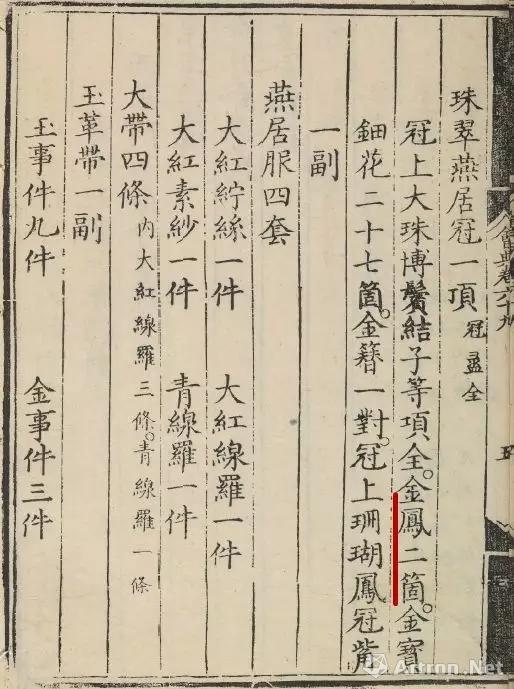 會典卷六十九
五
珠翠燕居冠一項 冠盝全
冠上大珠博鬢結子等項全。金鳳二箇。金寶
鈿花二十七箇。金簪一對。冠上珊瑚鳳冠觜
一副
燕居服四套
大紅紵絲一件 大紅線羅一件
大紅素紗一件 青線羅一件
大帶四條 內大紅線羅三條。青線羅一條
玉革帶一副
玉事件九件 金事件三件
Artron.Net